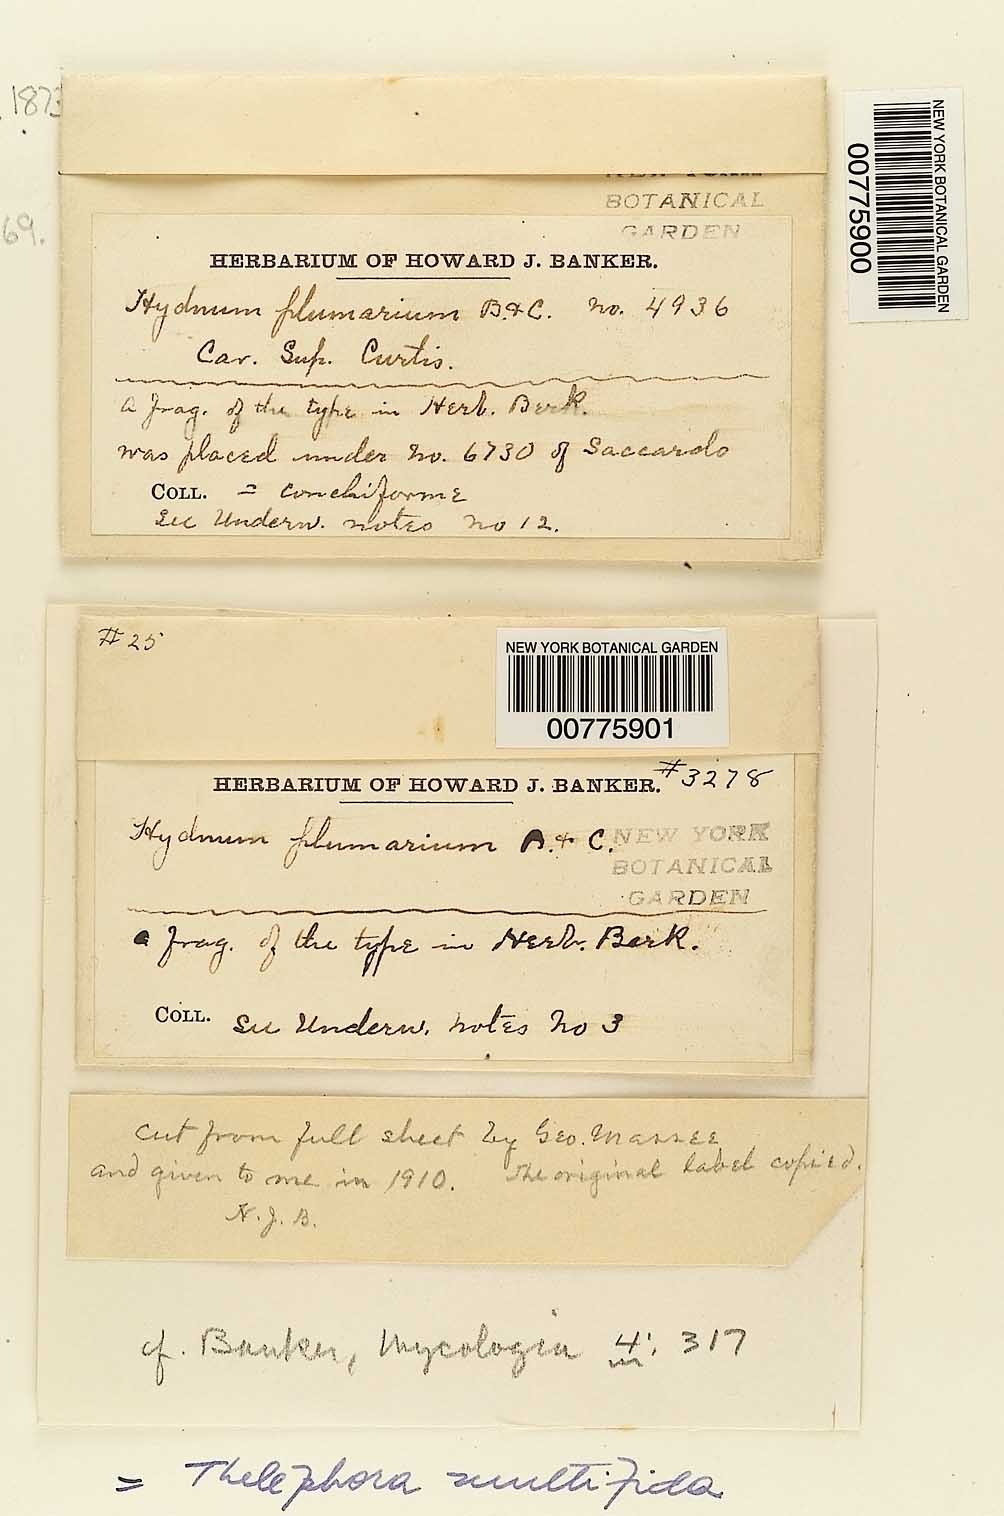 1873
69.
NEW YORK
BOTANICAL
GARDEN
NEW YORK BOTANICAL GARDEN
00775900
HERBARIUM OF HOWARD J. BANKER.
Hydnum plumarium B.&C. no. 4936
Car. Sup. Curtis.
a frag. of the type in Herb. Berk.
was placed under no. 6730 of Saccardo
COLL. = conchiforme
See Underw. notes no 12.
#25
NEW YORK BOTANICAL GARDEN
00775901
HERBARIUM OF HOWARD J. BANKER. #3278
Hydnum plumarium B.& C.
NEW YORK
BOTANICAL
GARDEN
a frag. of the type in Herb. Berk.
COLL. See Underw. notes no 3
cut from full sheet by Geo. Massee
and given to me in 1910. The original label copied.
H.J.B.
cf. Banker, Mycologia 4: 317
= Thelephora multifida